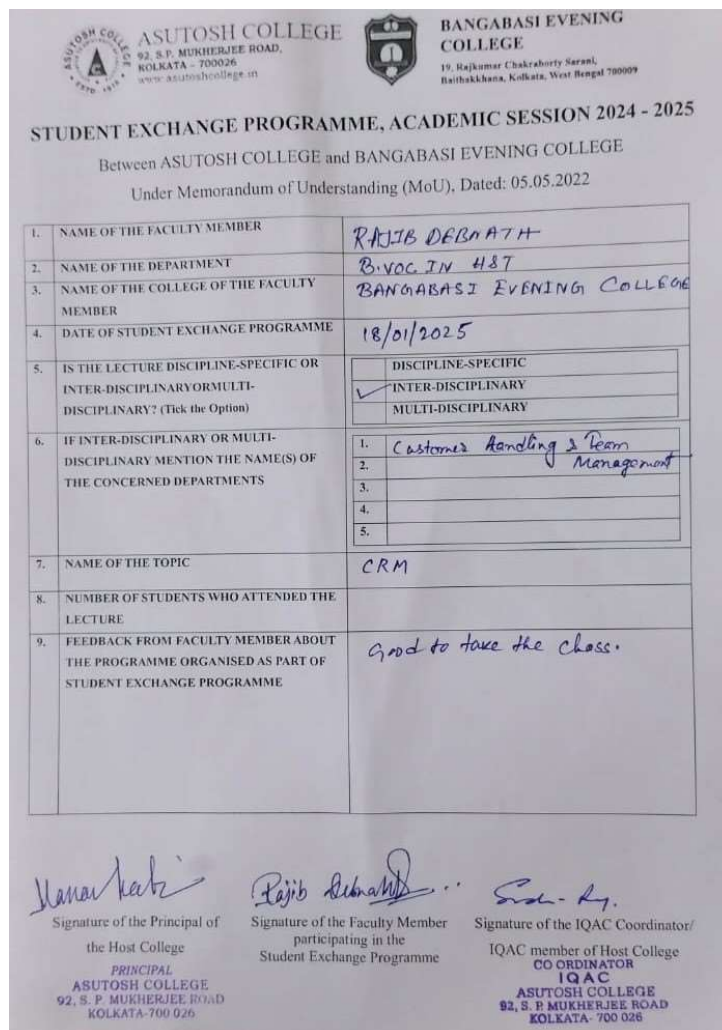 ASUTOSH COLLEGE
ESTD. 1916
ASUTOSH COLLEGE
92, S.P. MUKHERJEE ROAD,
KOLKATA - 700026
www.asutoshcollege.in
BANGABASI EVENING
COLLEGE
19, Rajkumar Chakraborty Sarani,
Baithakkhana, Kolkata, West Bengal 700009
STUDENT EXCHANGE PROGRAMME, ACADEMIC SESSION 2024 - 2025
Between ASUTOSH COLLEGE and BANGABASI EVENING COLLEGE
Under Memorandum of Understanding (MoU), Dated: 05.05.2022
1. NAME OF THE FACULTY MEMBER
RAJIB DEBNATH
2. NAME OF THE DEPARTMENT
B.VOC IN H&T
3. NAME OF THE COLLEGE OF THE FACULTY
MEMBER
BANGABASI EVENING COLLEGE
4. DATE OF STUDENT EXCHANGE PROGRAMME
18/01/2025
5. IS THE LECTURE DISCIPLINE-SPECIFIC OR
INTER-DISCIPLINARYORMULTI-
DISCIPLINARY? (Tick the Option)
DISCIPLINE-SPECIFIC
INTER-DISCIPLINARY
MULTI-DISCIPLINARY
6. IF INTER-DISCIPLINARY OR MULTI-
DISCIPLINARY MENTION THE NAME(S) OF
THE CONCERNED DEPARTMENTS
1. Customer Handling & Team
2. Management
3.
4.
5.
7. NAME OF THE TOPIC
CRM
8. NUMBER OF STUDENTS WHO ATTENDED THE
LECTURE
9. FEEDBACK FROM FACULTY MEMBER ABOUT
THE PROGRAMME ORGANISED AS PART OF
STUDENT EXCHANGE PROGRAMME
Good to take the class.
Signature of the Principal of
the Host College
PRINCIPAL
ASUTOSH COLLEGE
92, S. P. MUKHERJEE ROAD
KOLKATA-700 026
Rajib Debnath
Signature of the Faculty Member
participating in the
Student Exchange Programme
Signature of the IQAC Coordinator/
IQAC member of Host College
CO ORDINATOR
IQAC
ASUTOSH COLLEGE
92, S. P. MUKHERJEE ROAD
KOLKATA- 700 026